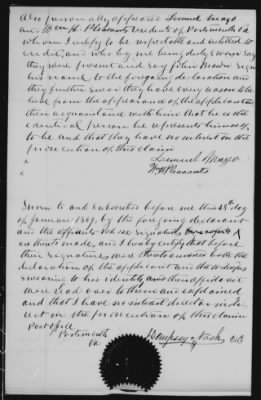 Also personally appeared Lemuel Mayo
and Wm H. Pleasants residents of Portsmouth Va
whom I certify to be respectable and entitled to
credit, and who by me being duly sworn say
they were present and say John Brown sign
his name to the foregoing declaration and
they further swear they have every reason to be-
lieve from the appearance of the applicant and
their acquaintance with him that he is the
identical person he represents himself
to be and that they have no interest in the
prosecution of this claim
Lemuel Mayo
W H Pleasants
Sworn to and subscribed before me this 28th day
of January 1869, by the foregoing declarant
and the affiants whose signatures X
are thereto made, and I hereby certify that before
their signatures were thereto
declaration of the applicant and the
swearing to his identity and the affidavit
were read over to them and explained
and that I have no interest direct or indi-
rect in the prosecution of this claim
Post Office
Portsmouth
Va
Dempsey Nash